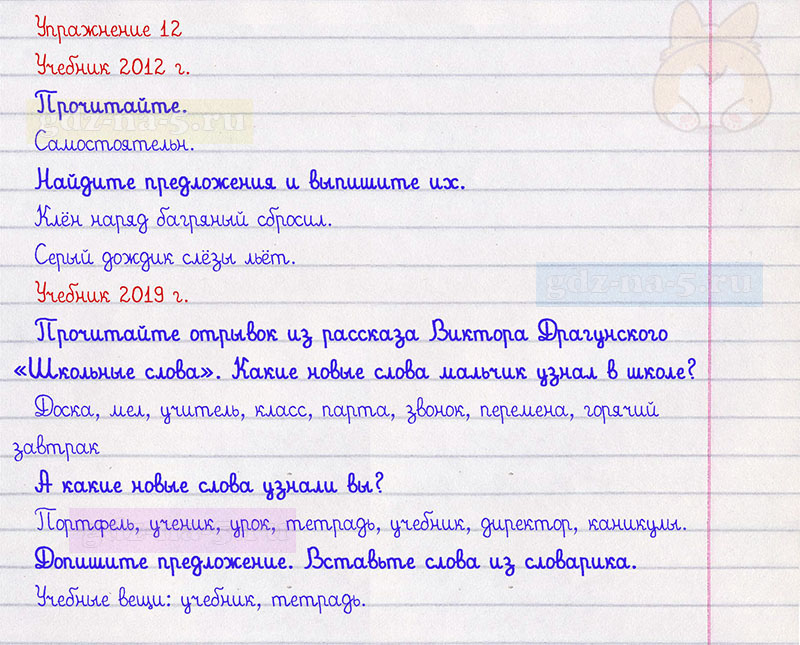 Упражнение 12
Учебник 2012 г.
Прочитайте.
gdz-na-5.ru
Самостоятельн.
Найдите предложения и выпишите их.
Клён наряд багряный сбросил.
Серый дождик слёзы льёт.
gdz-na-5.ru
Учебник 2019 г.
Прочитайте отрывок из рассказа Виктора Драгунского
«Школьные слова». Какие новые слова мальчик узнал в школе?
Доска, мел, учитель, класс, парта, звонок, перемена, горячий
завтрак
А какие новые слова узнали вы?
Портфель, ученик, урок, тетрадь, учебник, директор, каникулы.
gdz-na-5.ru
Допишите предложение. Вставьте слова из словарика.
Учебные вещи: учебник, тетрадь.